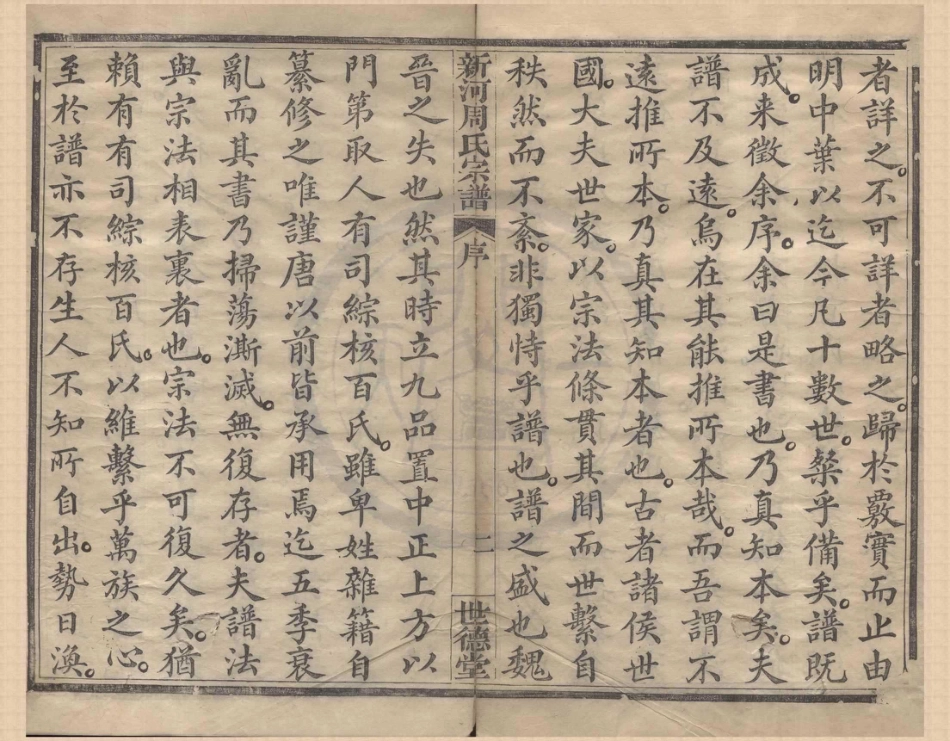 者詳之。不可詳者略之。歸於覈實而止由
明中葉以迄今凡十數世。粲乎備矣。譜既
成。来徵余序。余曰是書也。乃真知本矣。夫
譜不及遠。烏在其能推所本哉。而吾謂不
遠推所本。乃真其知本者也。古者諸侯世
國。大夫世家。以宗法條貫其間而世繫自
秩然而不紊。非獨恃乎譜也。譜之盛也魏
新河周氏宗譜 序 二 世德堂
晉之失也然其時立九品置中正上方以
門第取人有司綜核百氏。雖卑姓雜籍自
纂修之唯謹唐以前皆承用焉迄五季衰
亂而其書乃掃蕩澌滅。無復存者。夫譜法
與宗法相表裏者也。宗法不可復久矣。猶
賴有有司綜核百氏。以維繫乎萬族之心。
至於譜亦不存生人不知所自出。勢日渙。